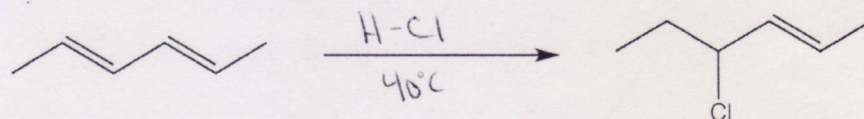 H-Cl
40°C
Cl